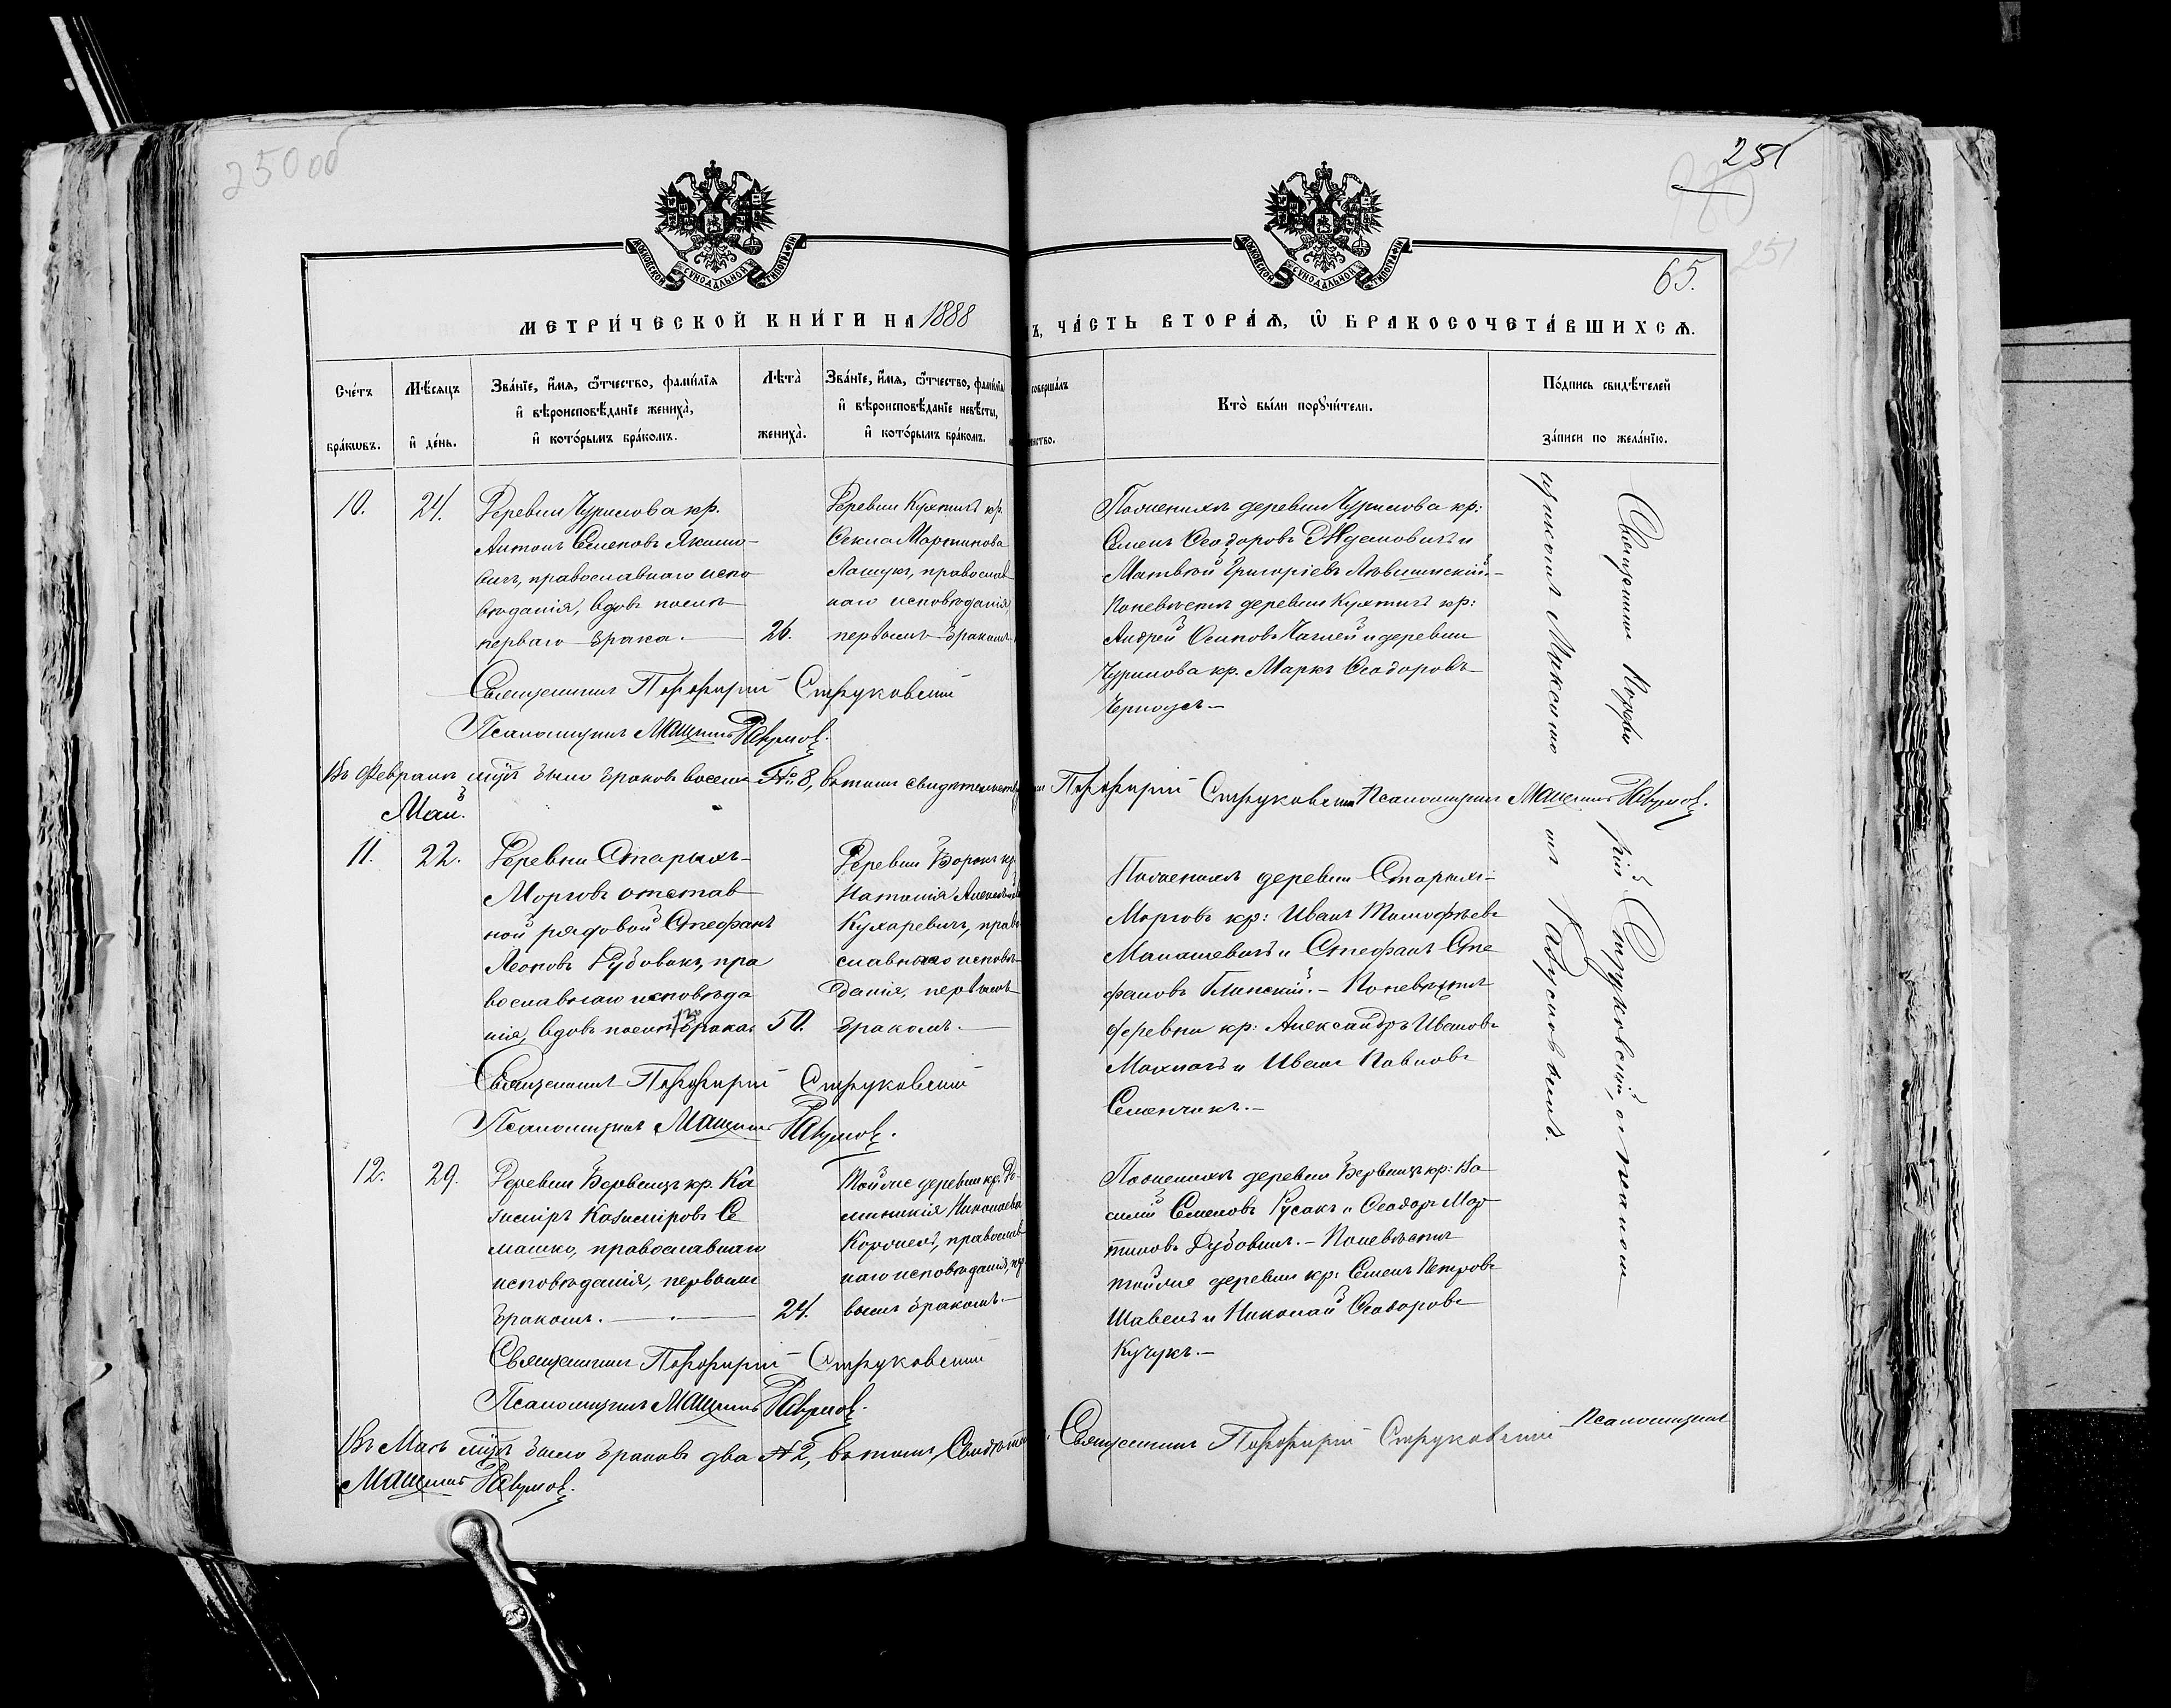 250 об
251
251
65.
МОСКОВСКОЙ СѴНОДАЛЬНОЙ ТИПОГРАФІИ
МОСКОВСКОЙ СѴНОДАЛЬНОЙ ТИПОГРАФІИ
МЕТРИ́ЧЕСКОЙ КНИ́ГИ НА 1888
Ъ, ЧА́СТЬ ВТОРА́Ѧ, Ѡ҆ БРАКОСОЧЕТА́ВШИХСѦ.
Сче́тъ бра́кѡвъ.
Мѣ́сѧцъ и҆ де́нь.
Зва́нїе, и҆́мѧ, ѻ҆́тчество, фами́лїѧ
и҆ вѣроисповѣ́данїе жениха̀,
и҆ кото́рымъ бра́комъ.
Лѣта̀ жениха̀.
Зва́нїе, и҆́мѧ, ѻ҆́тчество, фами́лїѧ
и҆ вѣроисповѣ́данїе невѣ́сты,
и҆ кото́рымъ бра́комъ.
совершáлъ
Кто̀ бы́ли порꙋчи́тели.
По́дпись свидѣ́телей
за́писи по жела́нїю.
10.
24.
Деревни Чурилова кр.
Антонъ Семеновъ Якимо-
вичъ, православнаго испо
вѣданія, вдовъ послѣ
перваго брака.
26.
Деревни Кухтичъ кр.
Ѳекла Мартинова
Лащукъ, православ
наго исповѣданія,
первымъ бракомъ.
Священникъ Порфирій Струковскій
Псаломщикъ Максимъ Павуловъ.
По женихѣ деревни Чурилова кр:
Семенъ Ѳеодоровъ Ждановичъ и
Матвѣй Григоріевъ Лювшинскій.-
По невѣстѣ деревни Кухтичъ кр:
Андрей Осиповъ Чаглей и деревни
Чурилова кр. Маркъ Ѳеодоровъ
Черноусъ.-
Въ Февралѣ м-цѣ было браковъ восемь № 8, въ томъ свидѣтельств
Порфирій Струковскій Псаломщикъ
Май.
11.
22.
Деревни Старыхъ-
Морговъ отстав
ной рядовой Стефанъ
Леоновъ Дубовикъ, пра
вославнаго исповѣда
нія, вдовъ послѣ 1го брака.
50.
Деревни Борокъ кр.
Наталія
Кухаревичъ, право
славнаго исповѣ-
данія, первымъ
бракомъ.
Священникъ Порфирій Струковскій
Псаломщикъ
По женихѣ деревни Старыхъ-
Морговъ кр: Иванъ Тимофѣевъ
Манашевичъ и Стефанъ Сте
фановъ Глинскій. - По невѣстѣ
деревни кр: Александръ Ивановъ
Махначъ и Иванъ Павловъ
Семенчикъ.-
12.
29.
Деревни Борвенцъ кр. Ка
зиміръ Казиміровъ Се
машко, православнаго
исповѣданія, первымъ
бракомъ.
24.
Тойже деревни кр.
Николаева
православ
наго исповѣданія, пер
вымъ бракомъ.-
Священникъ Порфирій Струковскій
Псаломщикъ
По женихѣ деревни Борвенцъ кр: Ва
силій Семеновъ Русакъ и Ѳеодоръ Мар
тиновъ Дубовикъ. - По невѣстѣ
тойже деревни кр: Семенъ Петровъ
Шавель и Николай Ѳеодоровъ
Кучукъ.-
Въ Маѣ м-цѣ было браковъ два № 2, въ томъ,
Священникъ Порфирій Струковскій Псаломщикъ
Священникъ Порфирій Струковскій, съ псалом
щикомъ